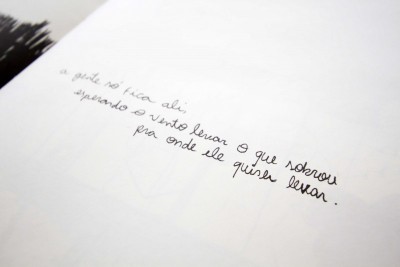 a gente só fica ali,
esperando o vento levar o que sobrou
pra onde ele quiser levar.